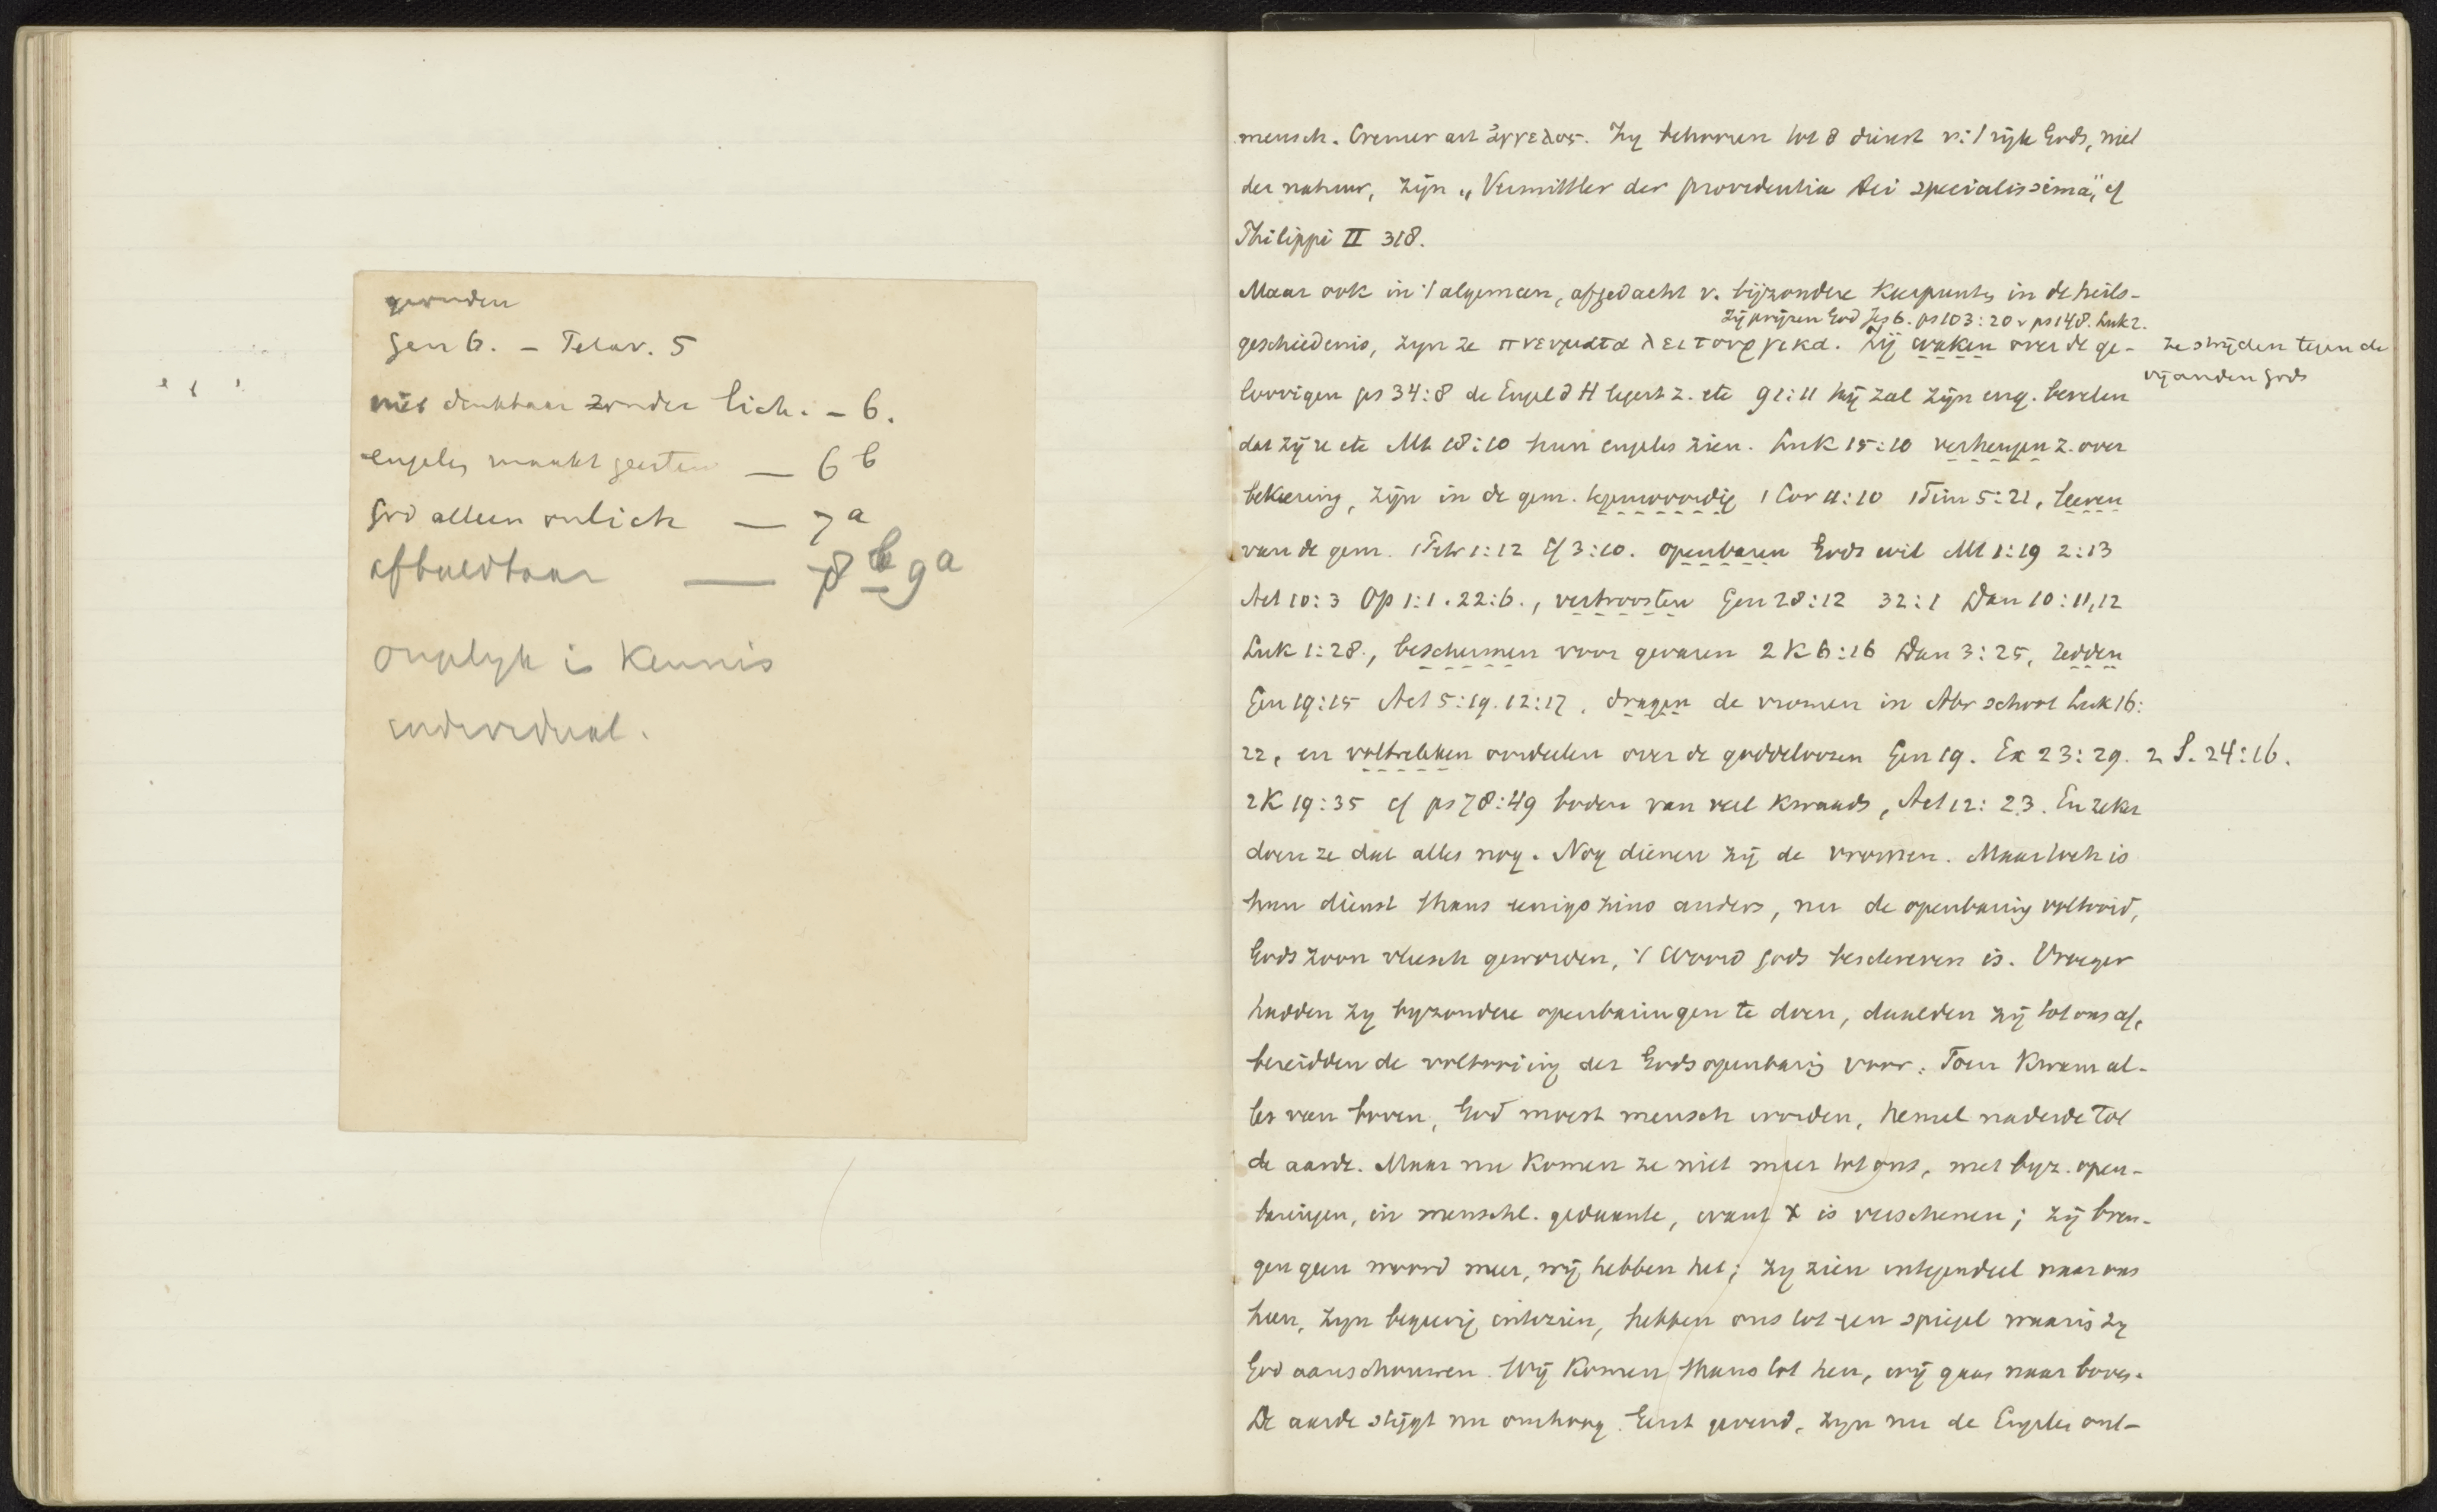 gevonden
Gen 6. – Telav. 5
niet denkbaar zonder lich. – 6.
engelen maakt geesten — 6 b
God alleen onlich — 7 a
afbeeldbaar — 8 b 9 a
Ongelyk is Kennis
individual.
mensch. Cremer art ἄγγελος. Zy behooren tot d dienst v. 't rijk Gods, niet
der natuur, zijn „Vermittler der providentia Dei specialissima", cf
Philippi II 318.
Maar ook in 't algemeen, afgedacht v. bijzondere Keerpunten in de heils-
Zij prijzen God Jes 6. ps 103:20 v ps 148. Luk 2.
geschiedenis, zyn ze πνευματα λειτουργικα. Zij waken over de ge-
ze strijden tegen de
vijanden Gods
loovigen ps 34:8 de Engel d H legert z. etc 91:11 hij zal zijn eng. bevelen
dat zij ze etc Mt 18:10 hun engelen zien. Luk 15:10 verheugen z. over
bekeering, zijn in de gem. tegenwoordig 1 Cor 11:10 1 Tim 5:21, leeren
van de gem. 1 Petr 1:12 Ef 3:10. openbaren Gods wil Mt 1:19 2:13
Act 10:3 Op 1:1. 22:6., vertroosten Gen 28:12 32:1 Dan 10:11,12
Luk 1:28., beschermen voor gevaren 2 K 6:16 Dan 3:25, redden
Gen 19:15 Act 5:19. 12:17, dragen de vromen in Abr schoot Luk 16:
22, en voltrekken oordeelen over de goddeloozen Gen 19. Ex 23:29. 2 S. 24:16.
2 K 19:35 cf ps 78:49 boden van veel kwaads, Act 12:23. En zeker
doen ze dat alles nog. Nog dienen zij de vromen. Maar toch is
hun dienst thans eenigszins anders, nu de openbaring voltooid,
Gods zoon vleesch geworden, 't Woord Gods beschreven is. Vroeger
hadden zy byzondere openbaringen te doen, daalden zij tot ons af,
bereidden de voltooiing der Godsopenbaring voor. Toen Kwam al-
les van boven, God moest mensch worden, hemel naderde tot
de aarde. Maar nu Komen ze niet meer tot ons, met byz. open-
baringen, in menschl. gedaante, want X is verschenen; zij bren-
gen geen woord meer, wij hebben het; zy zien integendeel naar ons
heen, zyn begeerig intezien, hebben ons tot een spiegel waarin zy
God aanschouwen. Wij Komen thans tot hen, wij gaan naar boven.
De aarde stijgt nu omhoog. Eerst gevend, zyn nu de Engelen ont-